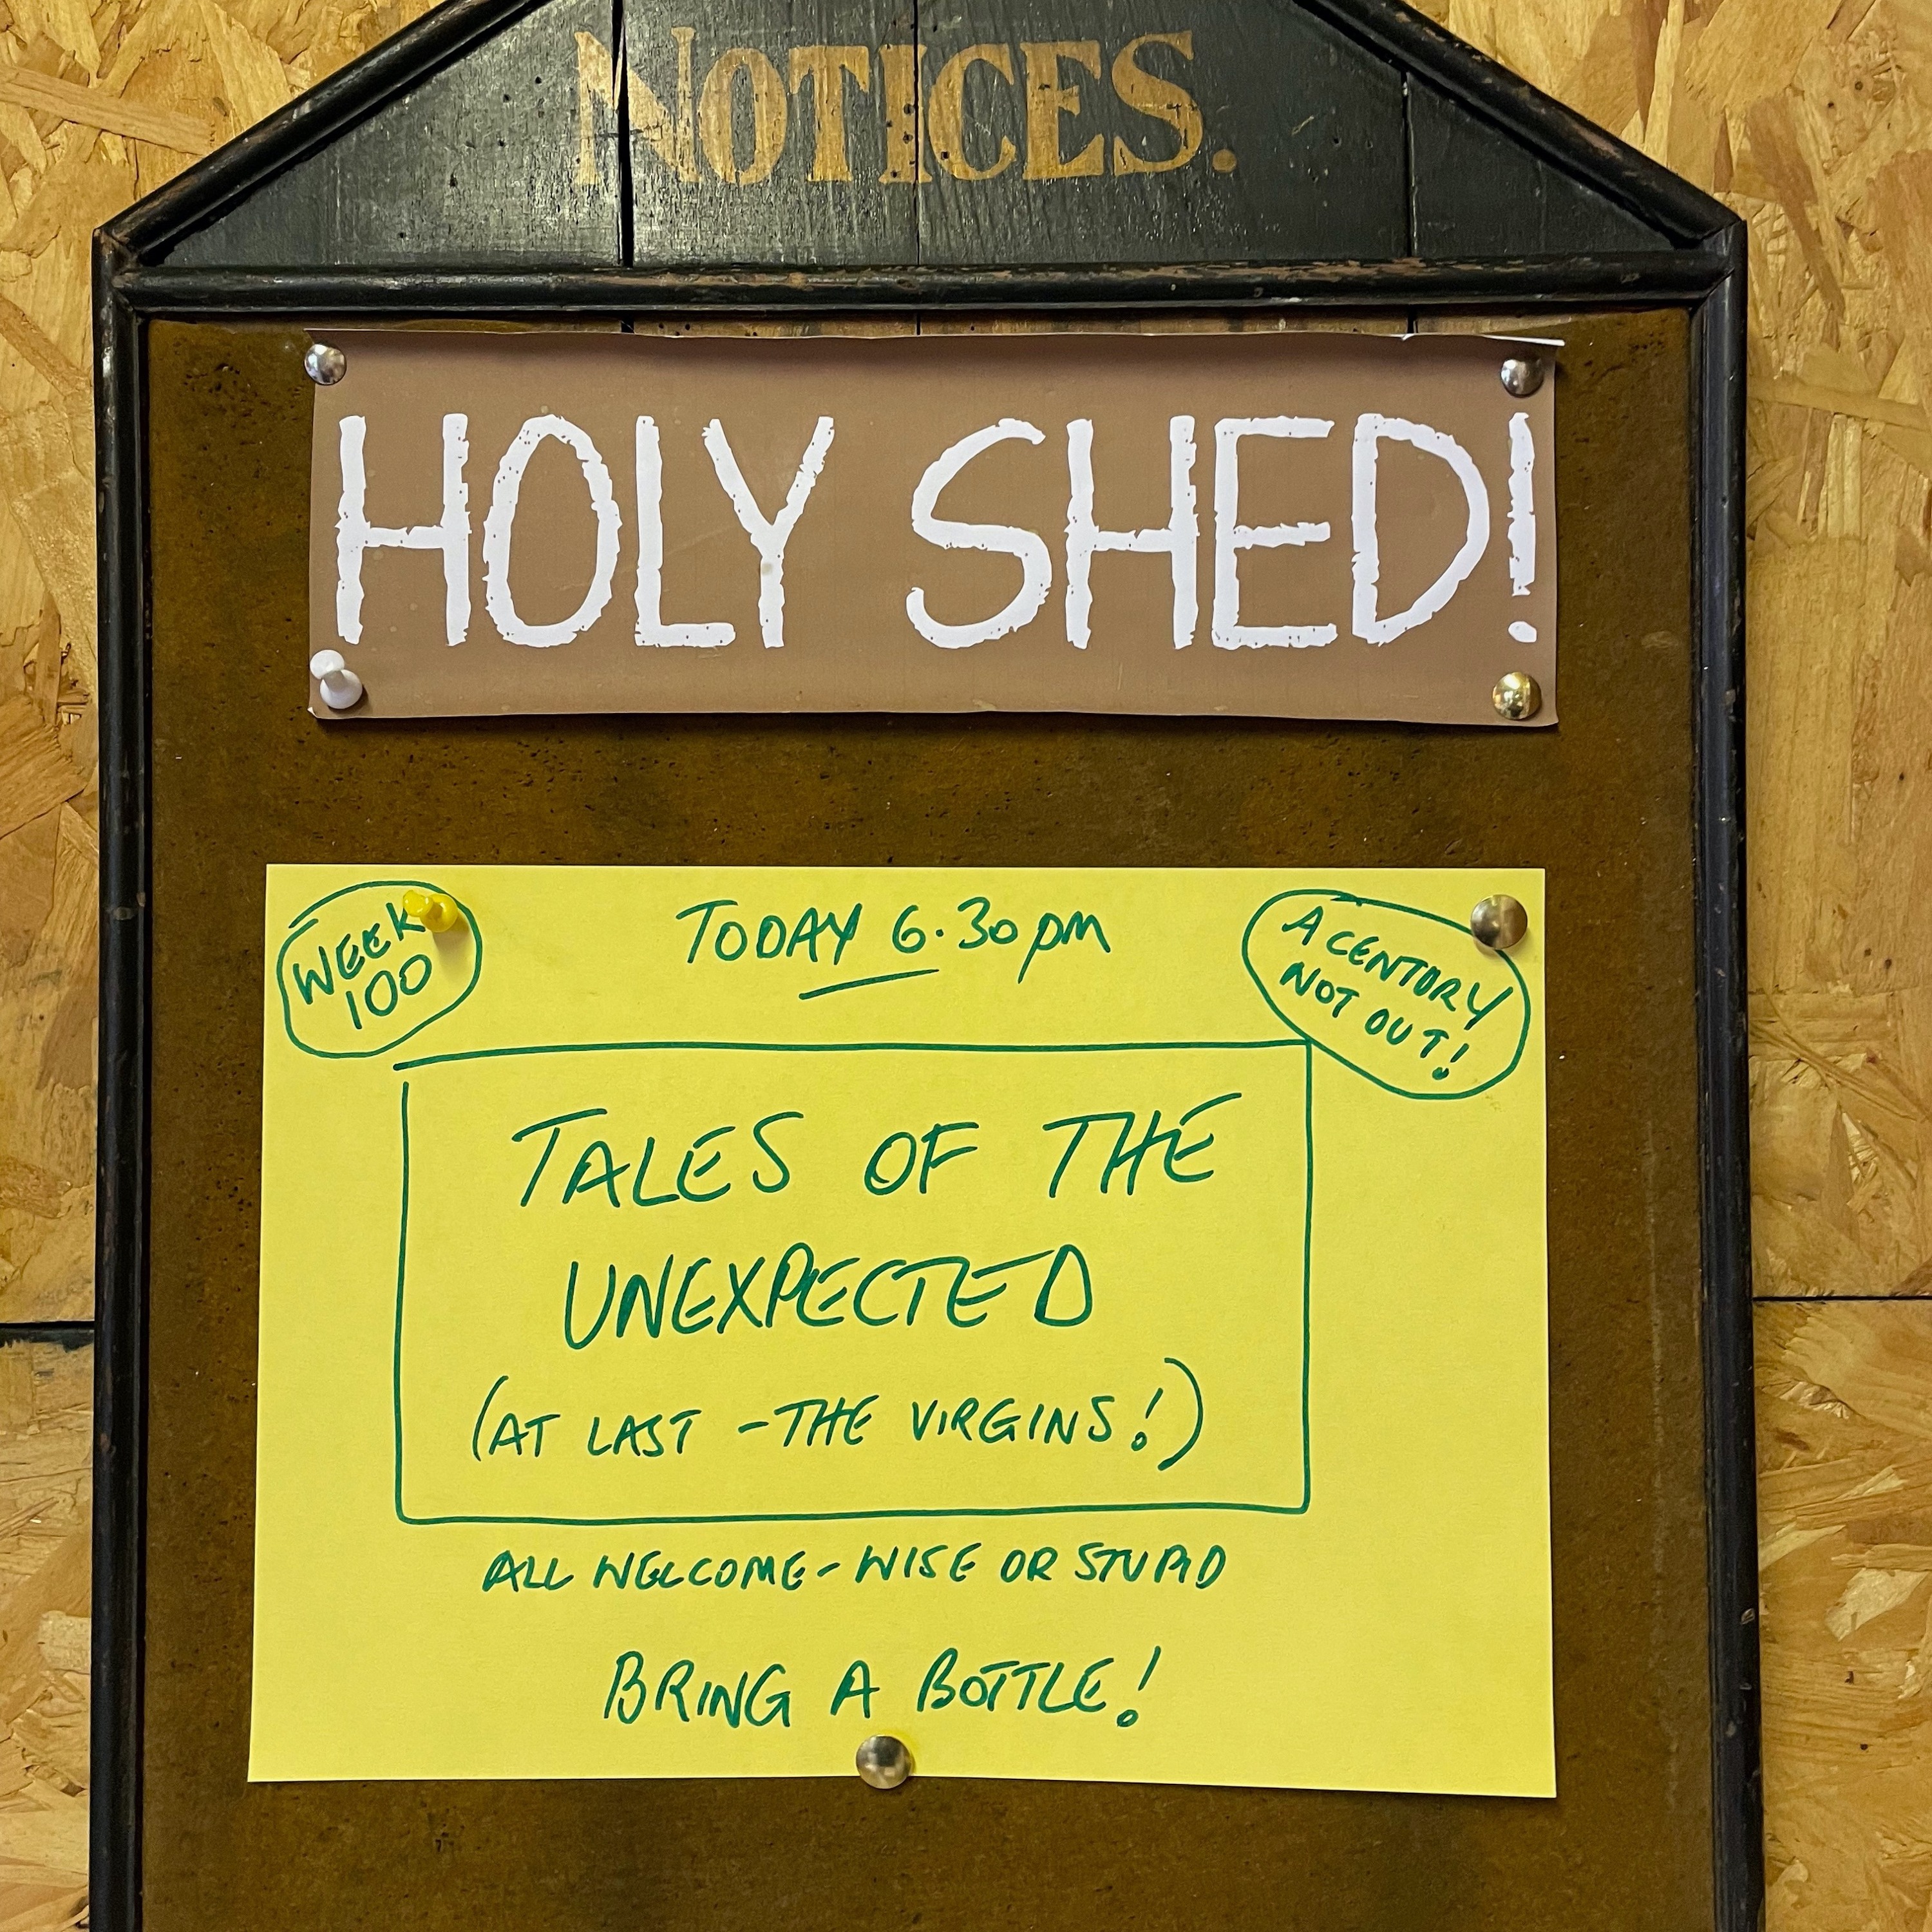 NOTICES.
HOLY SHED!
WEEK
100
TODAY 6.30pm
A CENTURY
NOT OUT!
TALES OF THE
UNEXPECTED
(AT LAST - THE VIRGINS!)
ALL WELCOME - WISE OR STUPID
BRING A BOTTLE!